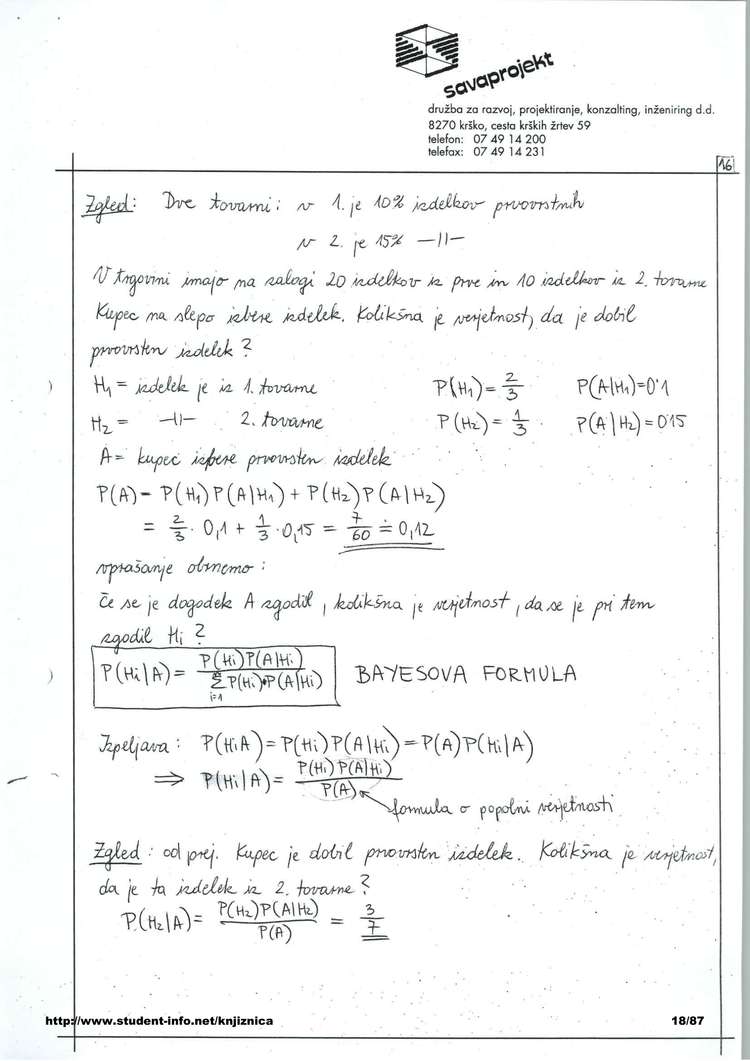 savaprojekt
družba za razvoj, projektiranje, konzalting, inženiring d.d.
8270 krško, cesta krških žrtev 59
telefon: 07 49 14 200
telefax: 07 49 14 231
16
Zgled: Dve tovarni: v 1. je 10% izdelkov prvovrstnih
v 2. je 15% —||—
V trgovini imajo na zalogi 20 izdelkov iz prve in 10 izdelkov iz 2. tovarne
Kupec na slepo izbere izdelek. Kolikšna je verjetnost, da je dobil
prvovrsten izdelek?
H₁ = izdelek je iz 1. tovarne P(H₁) = 2/3 P(A|H₁)=0'1
H₂ = —||— 2. tovarne P(H₂) = 1/3 P(A|H₂)=0'15
A = kupec izbere prvovrsten izdelek
P(A) = P(H₁)P(A|H₁) + P(H₂)P(A|H₂)
= 2/3 · 0,1 + 1/3 · 0,15 = 7/60 ≐ 0,12
vprašanje obrnemo:
Če se je dogodek A zgodil, kolikšna je verjetnost, da se je pri tem
zgodil Hi?
P(Hi|A) = P(Hi)P(A|Hi) / Σ i=1 n P(Hi)·P(A|Hi) BAYESOVA FORMULA
Izpeljava: P(HiA) = P(Hi)P(A|Hi) = P(A)P(Hi|A)
⇒ P(Hi|A) = P(Hi)P(A|Hi) / P(A)
formula o popolni verjetnosti
Zgled: od prej. Kupec je dobil prvovrsten izdelek. Kolikšna je verjetnost,
da je ta izdelek iz 2. tovarne?
P(H₂|A) = P(H₂)P(A|H₂) / P(A) = 3/7
http://www.student-info.net/knjiznica
18/87